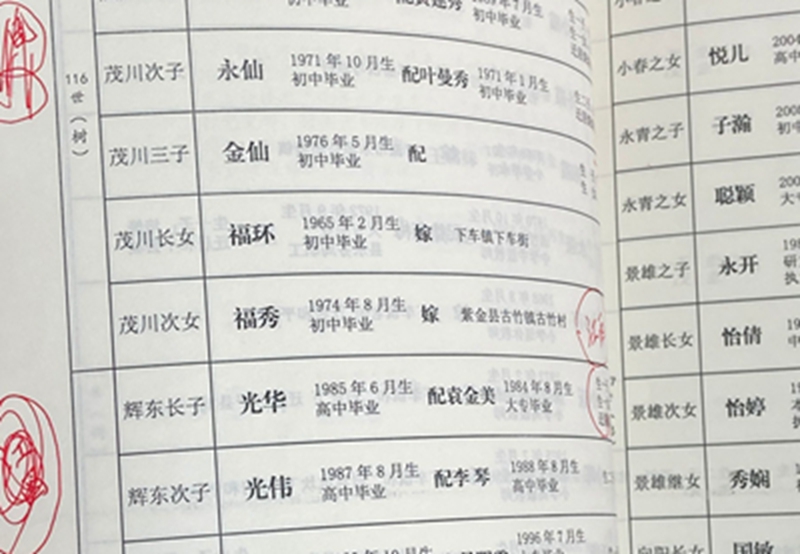 初中毕业
初中毕业
116
世
（树）
茂川次子
永仙
1971 年 10 月生
初中毕业
配叶曼秀
1971 年 1 月
初中毕业
茂川三子
金仙
1976 年 5 月生
初中毕业
配
茂川长女
福环
1965 年 2 月生
初中毕业
嫁
下车镇下车街
茂川次女
福秀
1974 年 8 月生
初中毕业
嫁
紫金县古竹镇古竹村
辉东长子
光华
1985 年 6 月生
高中毕业
配袁金美
1984 年 8 月生
大专毕业
辉东次子
光伟
1987 年 8 月生
高中毕业
配李琴
1988 年 8 月生
高中毕业
1996 年 7 月
小春之女
悦儿
2004
高中
永青之子
子瀚
2008
初中
永青之女
聪颖
200
大专
景雄之子
永开
198
研
执
景雄长女
怡倩
19
中
景雄次女
怡婷
景雄继女
秀娴
向阳长女
国敏